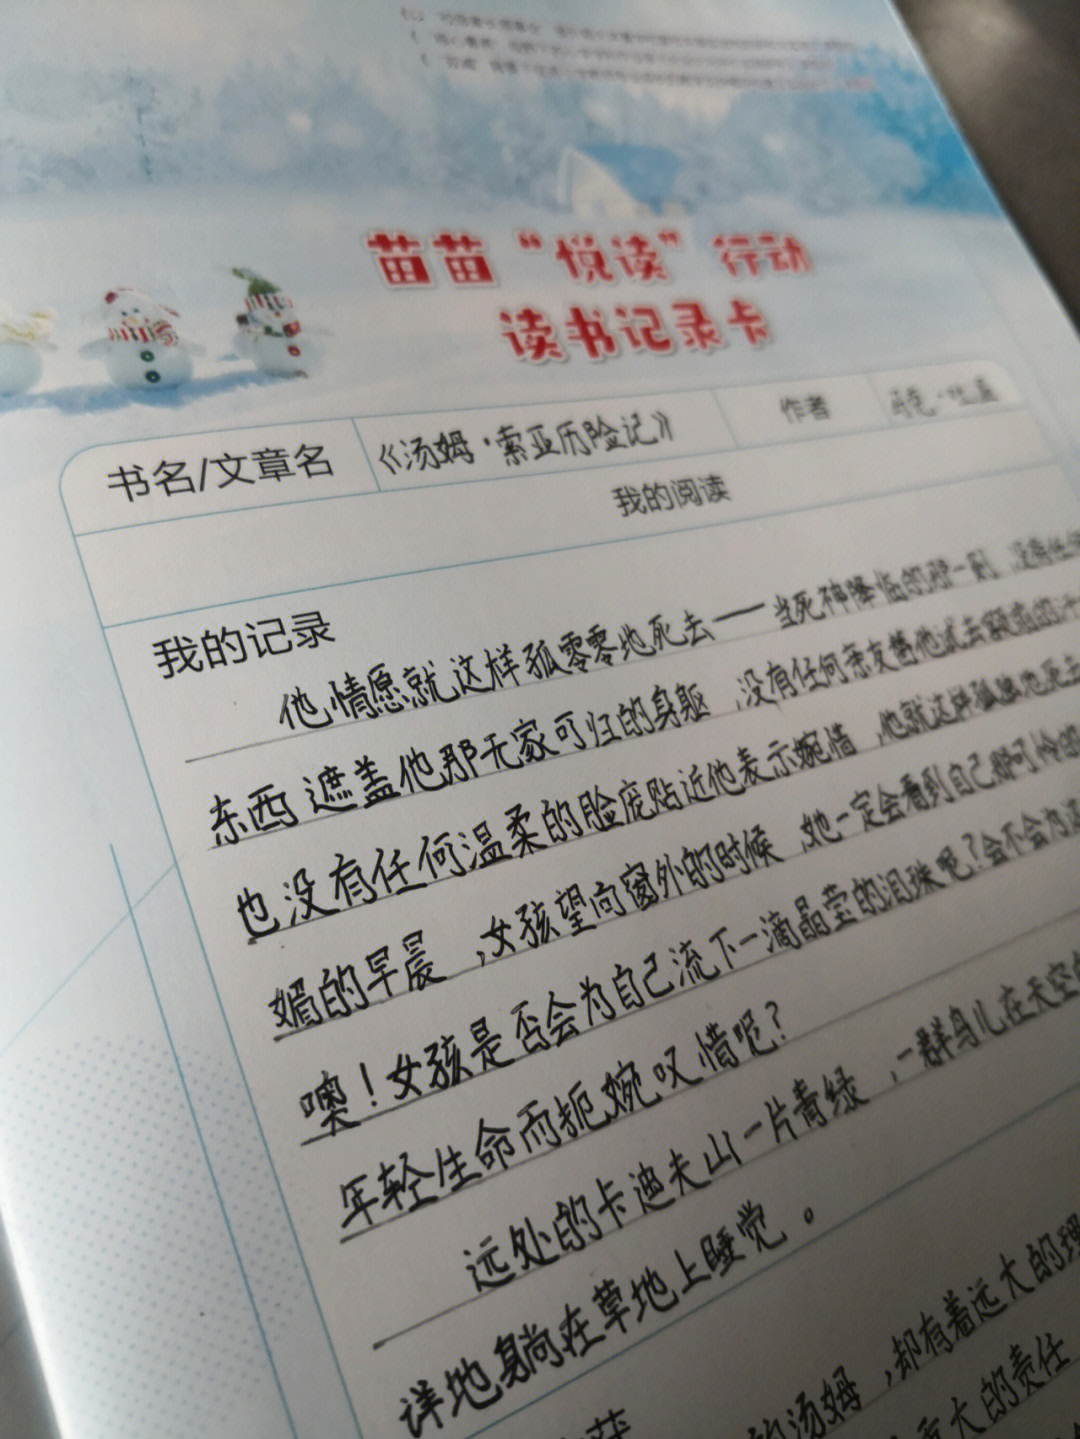 苗苗“悦读”行动
读书记录卡
书名/文章名 《汤姆·索亚历险记》 作者 马克·吐温
我的阅读
我的记录
他情愿就这样孤零零地死去——当死神降临的那一刻 没有任何
东西遮盖他那无家可归的身躯，没有任何亲友替他拭去额前的汗
也没有任何温柔的脸庞贴近他表示婉惜，他就这样孤独地死去
媚的早晨，女孩望向窗外的时候，她一定会看到自己那可怜的
噢！女孩是否会为自己流下一滴晶莹的泪珠呢？会不会为这
年轻生命而扼婉叹惜呢？
远处的卡迪夫山一片青绿，一群鸟儿在天空
详地躺在草地上睡觉。
的汤姆，却有着远大的理
重大的责任